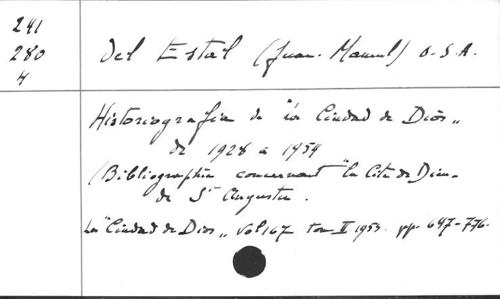 241
280
4
Del Estal (Juan-Manuel) O.S.A.
Historiografia de "La Ciudad de Dios"
de 1928 a 1954
(Bibliographie concernant "la Cité de Dieu"
de St Augustin.
La "Ciudad de Dios" Vol 167 tom II 1955. pp. 647-776.